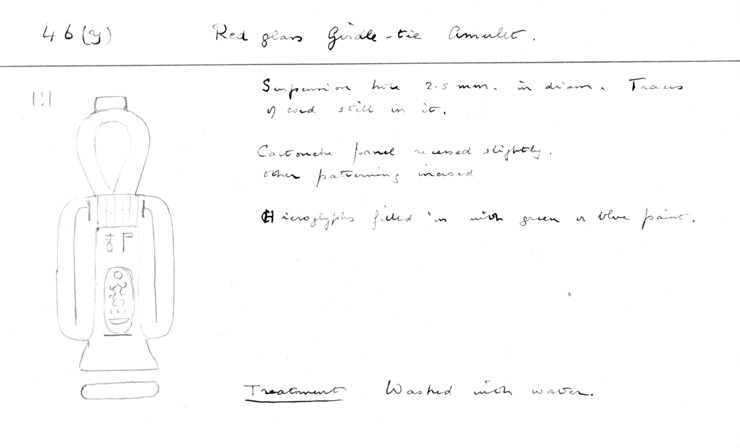 46(y) Red glass Girdle-tie Amulet.
1:1
Suspension hole 2.5 mm. in diam. Traces
of cord still in it.
Cartouche panel recessed slightly.
Other patterning incised
Hieroglyphs filled in with green or blue paint.
Treatment Washed with water.